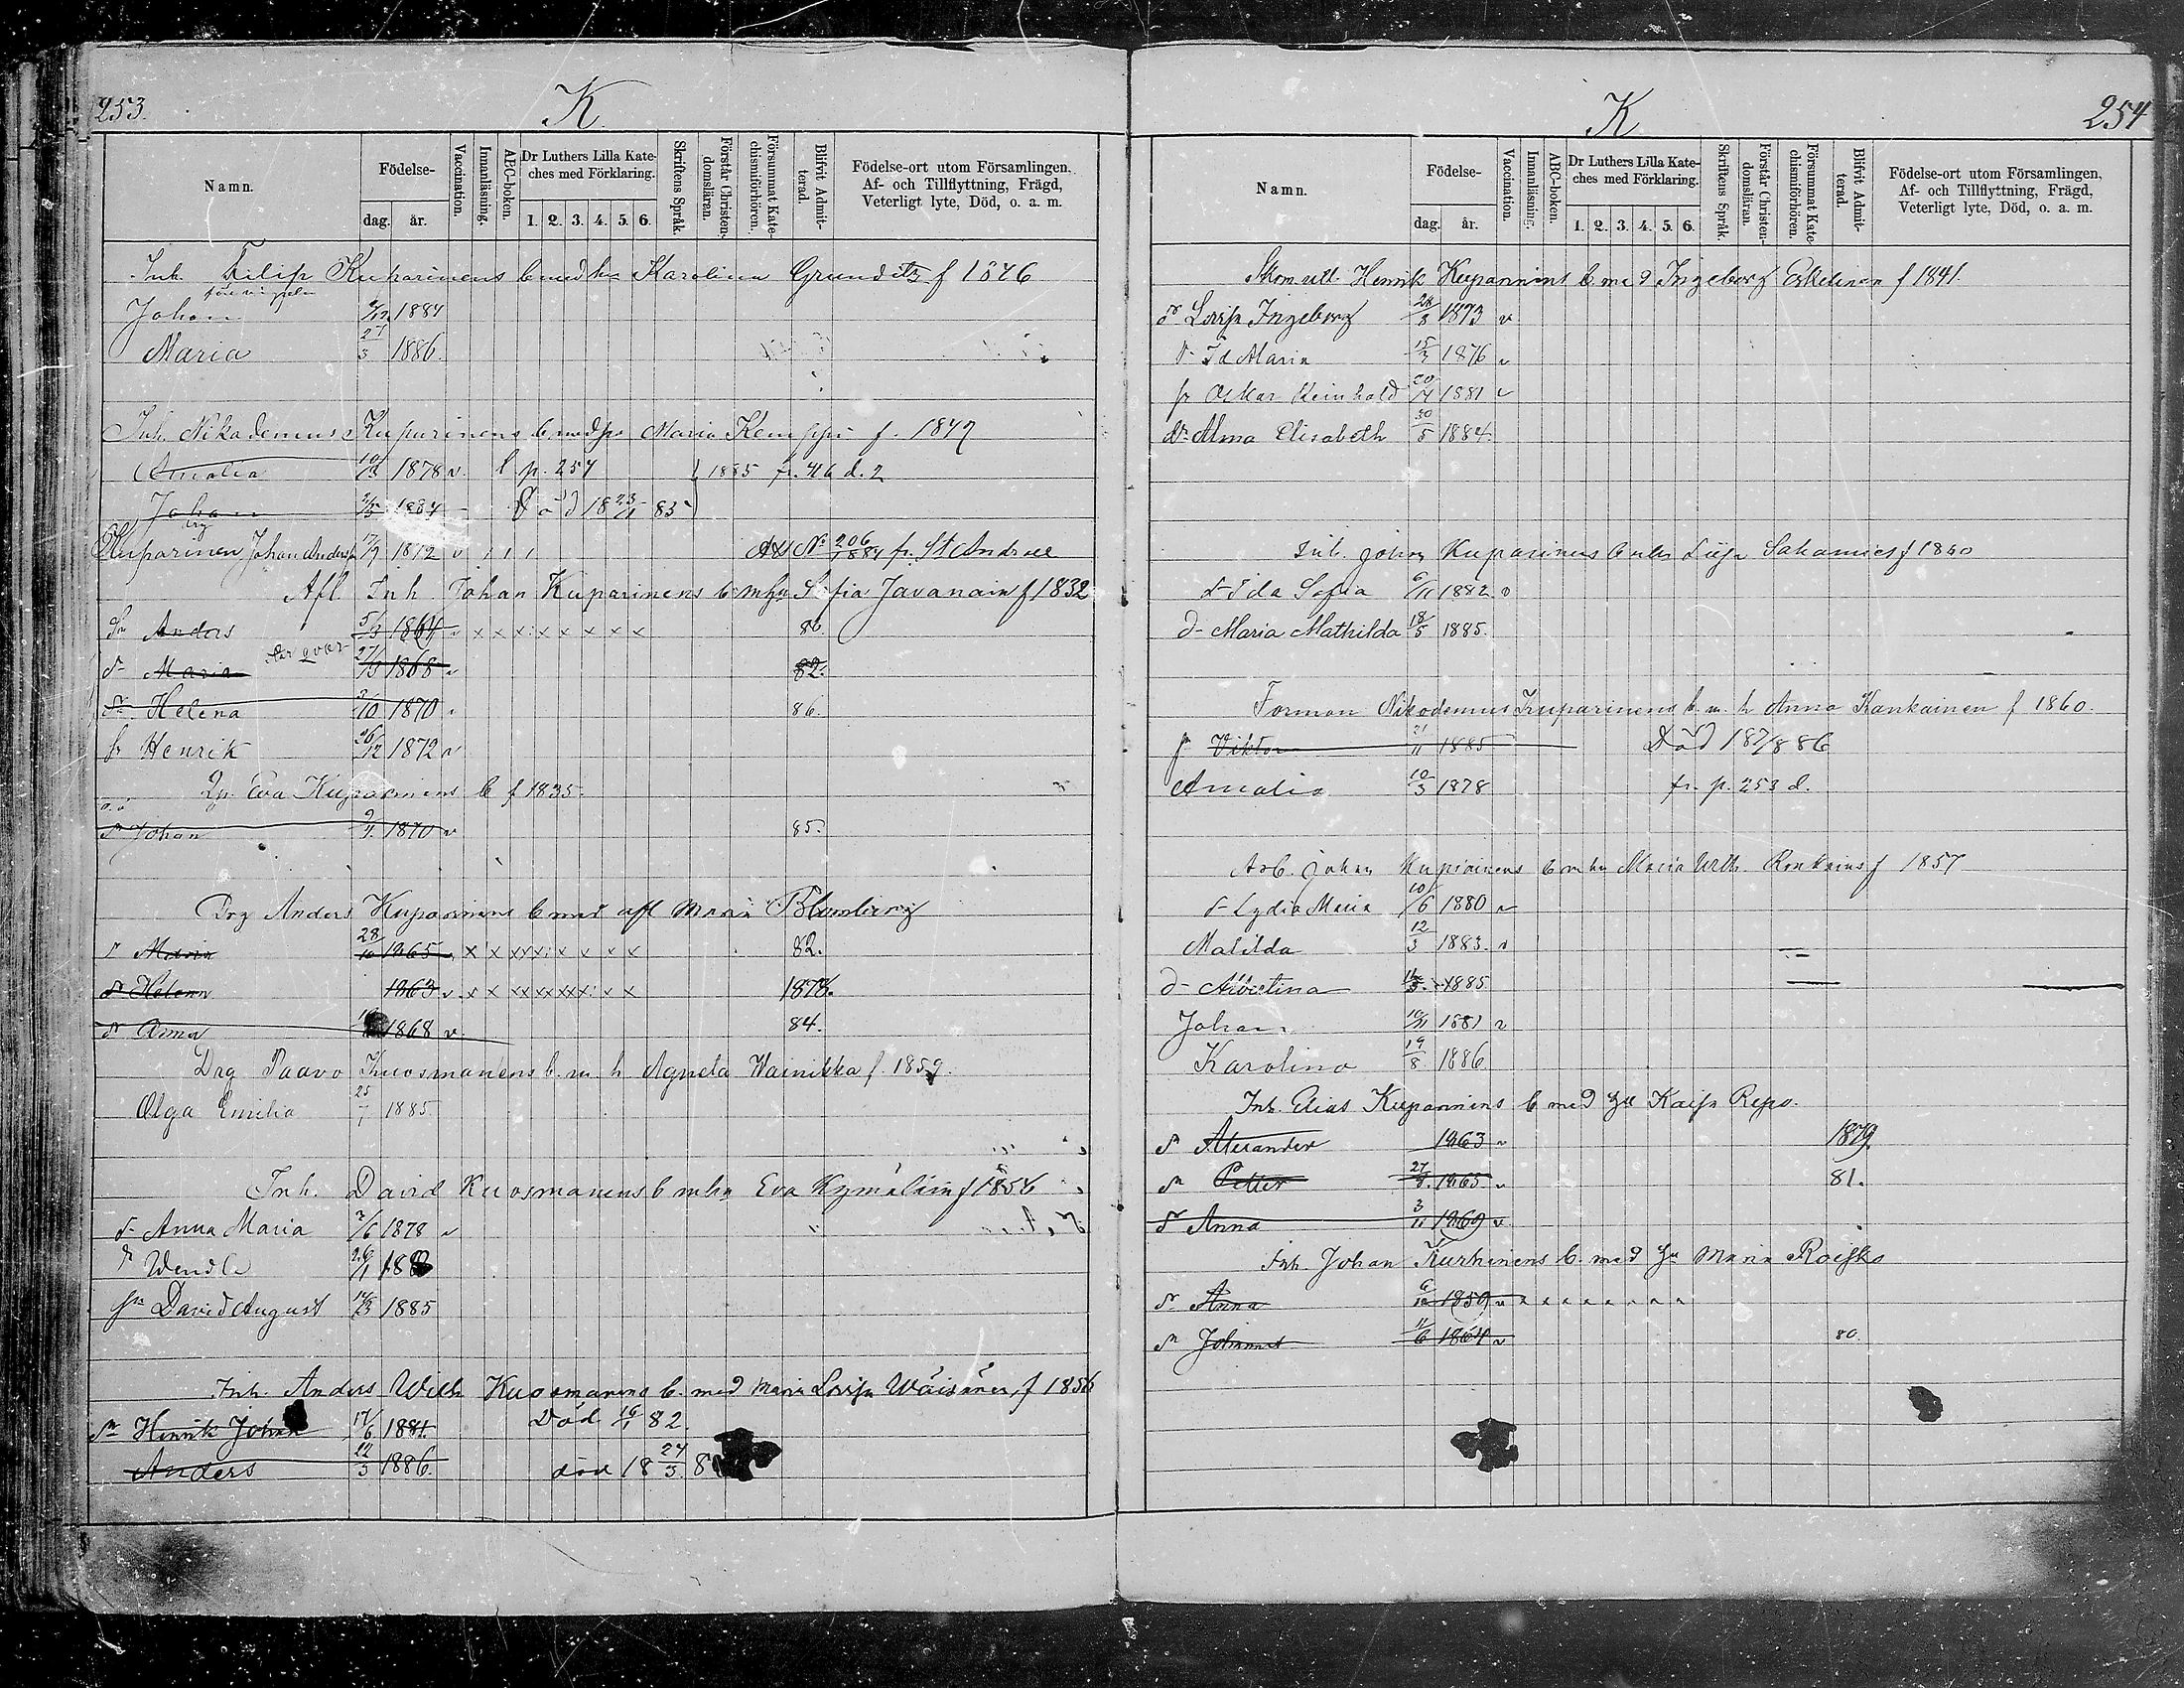 253.
K
Namn.
Födelse-
dag.
år.
Vaccination.
Innanläsning.
ABC-boken.
Dr Luthers Lilla Kate-
ches med Förklaring.
1. 2. 3. 4. 5. 6.
Skriftens Språk.
Förstår Christen-
domsläran.
Försummat Kate-
chismiförhören.
Blifvit Admit-
terad.
Födelse-ort utom Församlingen.
Af- och Tillflyttning, Frägd,
Veterligt lyte, Död, o. a. m.
Inh. Filip Kuparinens b med hu Karolina Grunditz f 1846
Johan 1884
Maria 27/3 1886.
Inh. Nikademus Kuparinens b med hu Maria Kemppi f. 1847
Amalia 10/3 1878 v. l p. 254 1885 fr. 46 d. 2
Johan 1884 Död 18 23/11 85
Kuparinen Johan Anderss 17/9 1872 v ı ı ı Att No 206 1884 fr. St Andree
Afl Inh. Johan Kuparinens b mhu Sofia Javanain f 1832
Sn Anders 5/3 1864 v x x x x x x x x 80.
dr Maria 27/3 1868 v 82.
är qvar
dr Helena 3/10 1870 86.
fr Henrik 26/12 1872 v
Qn. Eva Kuparinens b f 1835.
o.ä
sn Johan 1870 v 85.
Drg Anders Kuparinens b med afl Maria Blomberg
dr Maria 28/10 1865 v x x x x x x x x 82.
dr Helena 1863 v. x x x x x x x x x x 1878.
dr Anna 1868 v 84.
Drg Paavo Kuosmanens b. m h Agneta Wainikka f. 1859.
Olga Emilia 25/7 1885.
Inh. David Kuosmanens b mhu Eva Kymäläin f 1856
d- Anna Maria 3/6 1878 v
dr Wendla 26/1 188
Sn David August 14/3 1885
Inh. Anders Wilh Kuosmanens b. med Maria Lovisa Wäisänen, f 1856
Sn Henrik Johan 17/6 1881. Död 16/1 82.
Anders 12/3 1886. död 18 24/3 8
K
254
Namn.
Födelse-
dag.
år.
Vaccination.
Innanläsning.
ABC-boken.
Dr Luthers Lilla Kate-
ches med Förklaring.
1. 2. 3. 4. 5. 6.
Skriftens Språk.
Förstår Christen-
domsläran.
Försummat Kate-
chismiförhören.
Blifvit Admit-
terad.
Födelse-ort utom Församlingen,
Af- och Tillflyttning, Frägd,
Veterligt lyte, Död, o. a. m.
Skom. Henrik Kuparinens b. med Ingeborg Eskelinen f 1841.
dr Lovisa Ingeborg 24/8 1873 v
d- Ida Maria 15/3 1876 v
sn Oskar Reinhold 20/4 1881 v
dr Alma Elisabeth 30/5 1884.
Inh. Johan Kuparinens b mhu Liisa f 1860
d- Ida Sofia 6/11 1882. v
d- Maria Mathilda 18/5 1885.
Forman Nikodemus Kuparinens b. m. h Anna Kankainen f 1860.
sn Viktor 21/11 1885 Död 18 7/8 86
Amalia 10/3 1878 fr. p. 253 d.
Arb. Johan Kupiainens b m hu Maria Ulrka Ronkains f 1857
d- Lydia Maria 10/6 1880 v
Matilda 12/3 1883. v
d- Albertina 1885
Johan 10/11 1881 v
Karolina 19/8 1886.
Inh. Elias Kuparinens b med hu Kaisa Repo.
sn Alexander 1863 v 1879.
sn Petter 27/9. 1865. v 81.
dr Anna 3/11 1869 v
Inh. Johan Kurhinens b. med hu Maria Roisko
dr Anna 6/12 1859 v x x x x x x x x
sn Johannes 11/6 1864 v 80.